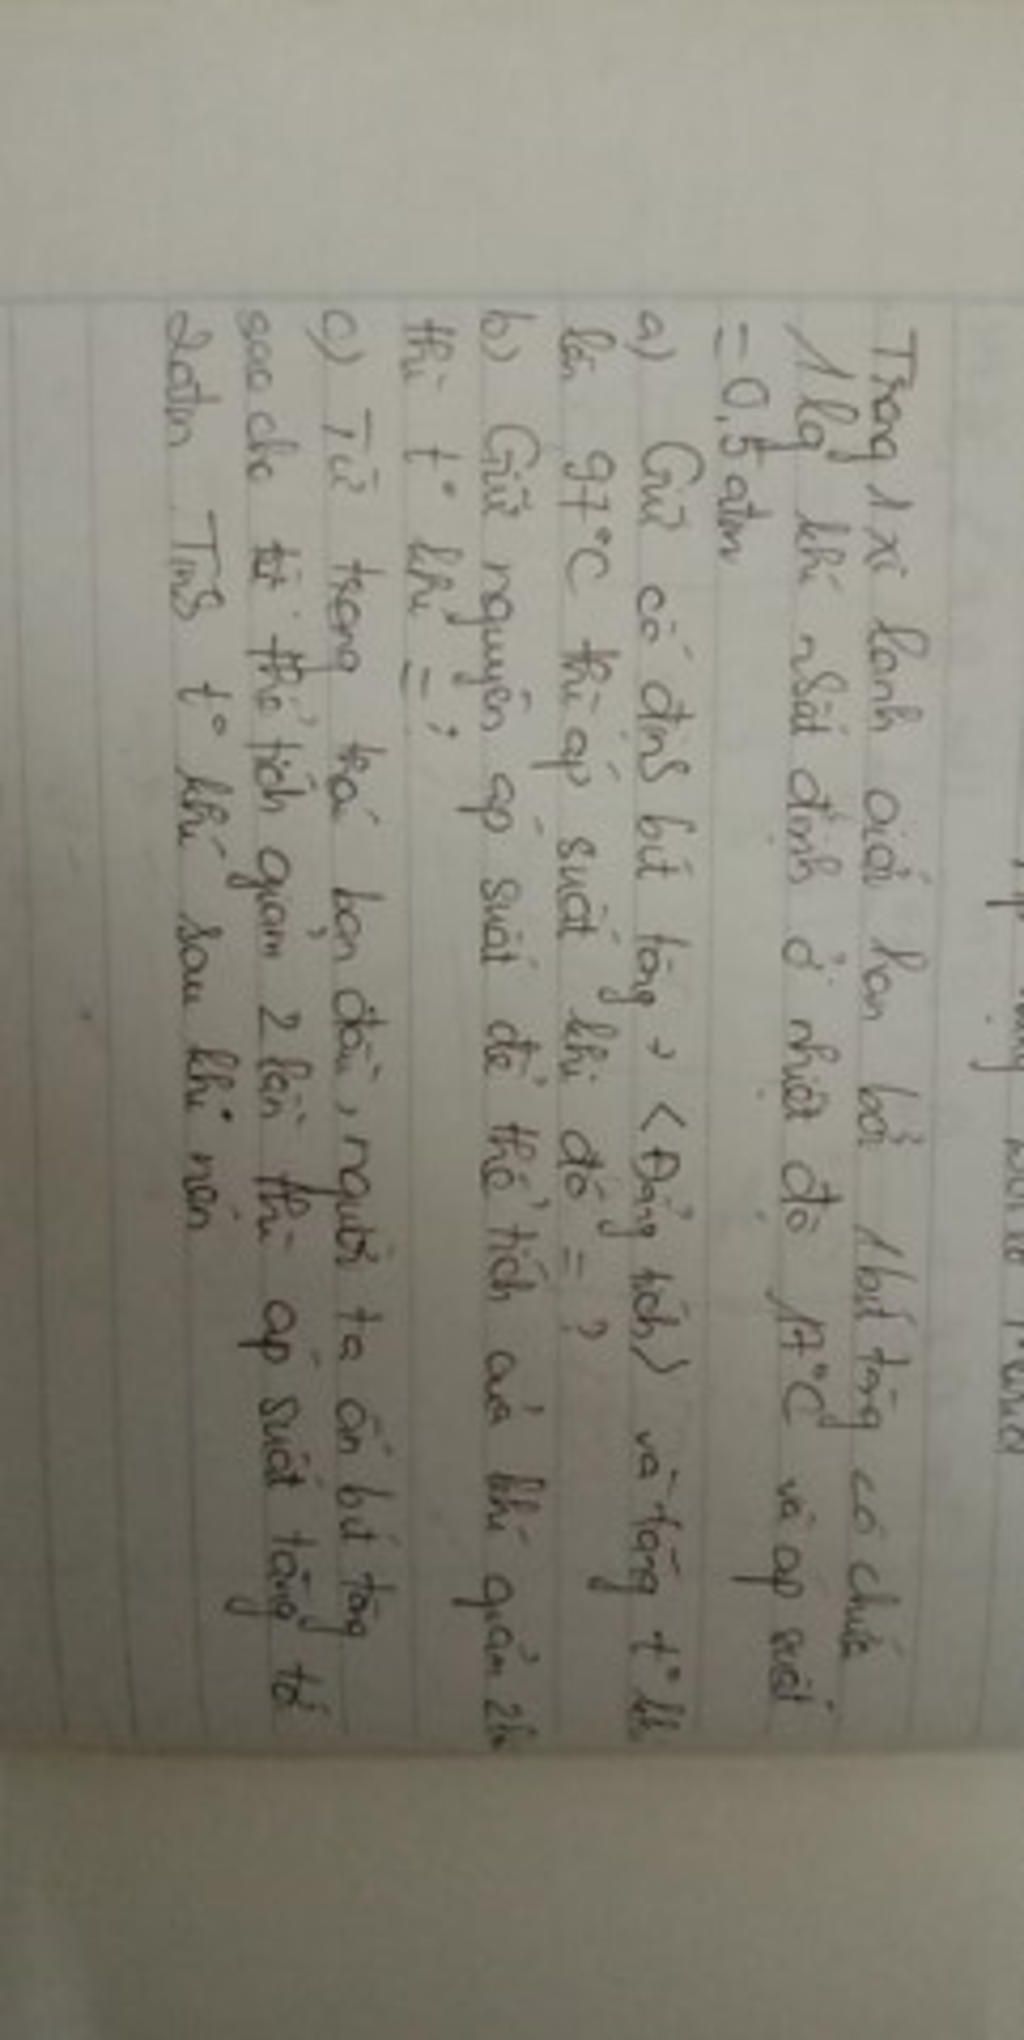 Trong 1 xi lanh giới hạn bởi 1 bít tông có chứa
1 lg khí nhất định ở nhiệt độ 17°C và áp suất
= 0,5 atm
a) Giữ cố định bít tông, <Đẳng tích> và tăng t° khí
lên 97°C thì áp suất khi đó = ?
b) Giữ nguyên áp suất để thể tích của khí giảm 2 lần
thì t° khí = ?
c) Từ trạng thái ban đầu, người ta ấn bít tông
sao cho thể tích giảm 2 lần thì áp suất tăng tới
2 atm Tính t° khí sau khi nén